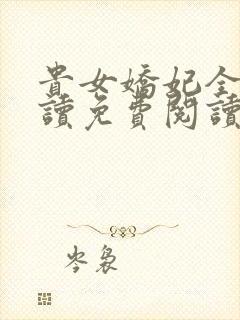 貴女嬌妃全
讀免費閱讀
岑裊